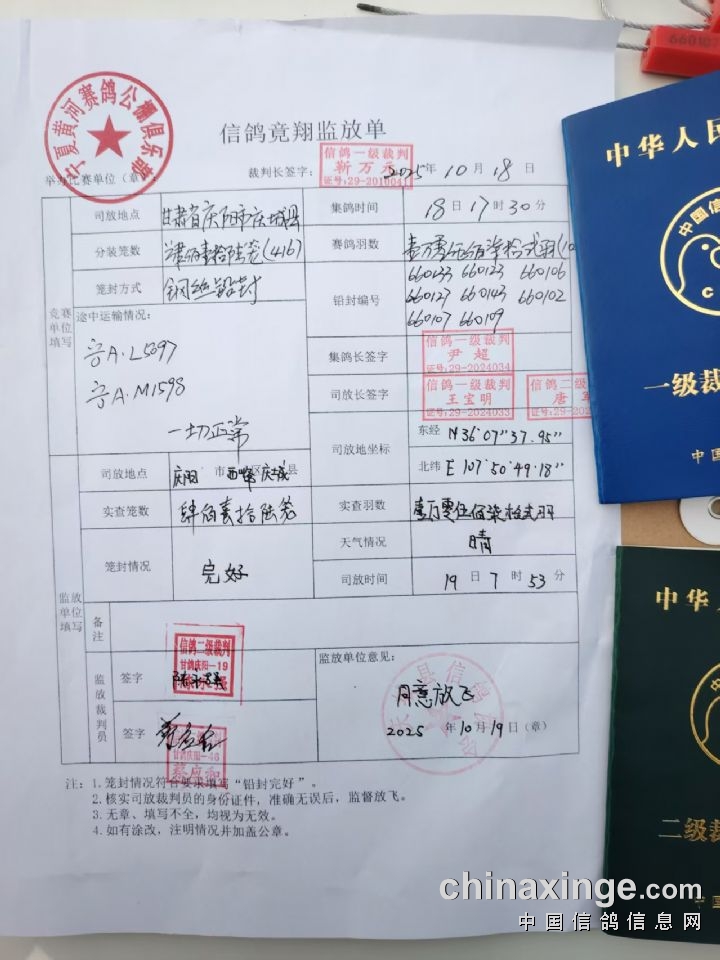 660107
宁夏黄河赛鸽公棚俱乐部
信鸽竟翔监放单
举办比赛单位（章）：
裁判长签字：
信鸽一级裁判
靳万元
证号:29-201004
2025年10月18日
竞赛单位填写
司放地点
甘肃省庆阳市庆城县
集鸽时间
18日17时30分
分装笼数
肆佰壹拾陆笼(416)
赛鸽羽数
壹万零伍佰柒拾贰羽(10
笼封方式
钢丝铅封
铅封编号
660133 660123 660106
660127 660143 660102
660107 660109
途中运输情况：
宁A·L5097
宁A·M1598
一切正常
集鸽长签字
信鸽一级裁判
尹超
证号:29-2024034
司放长签字
信鸽一级裁判
王宝明
证号:29-2024033
信鸽二级
唐军
证号:29-2
司放地坐标
东经 N36°07"37.95"
北纬 E107°50'49.18"
监放单位填写
司放地点
庆阳市西峰区庆城县
实查笼数
肆佰壹拾陆笼
实查羽数
壹万零伍佰柒拾贰羽
笼封情况
完好
天气情况
晴
司放时间
19日7时53分
备注
监放裁判员
签字
信鸽二级裁判
甘鸽庆阳-19
签字
甘鸽庆阳-46
蔡应和
监放单位意见：
同意放飞
2025年10月19日（章）
县信鸽
注：1.笼封情况符合要求填写“铅封完好”。
2.核实司放裁判员的身份证件，准确无误后，监督放飞。
3.无章、填写不全，均视为无效。
4.如有涂改，注明情况并加盖公章。
中华人民
中国信
一级裁
中国
中华人
二级裁
中
chinaxinge.com
中国信鸽信息网